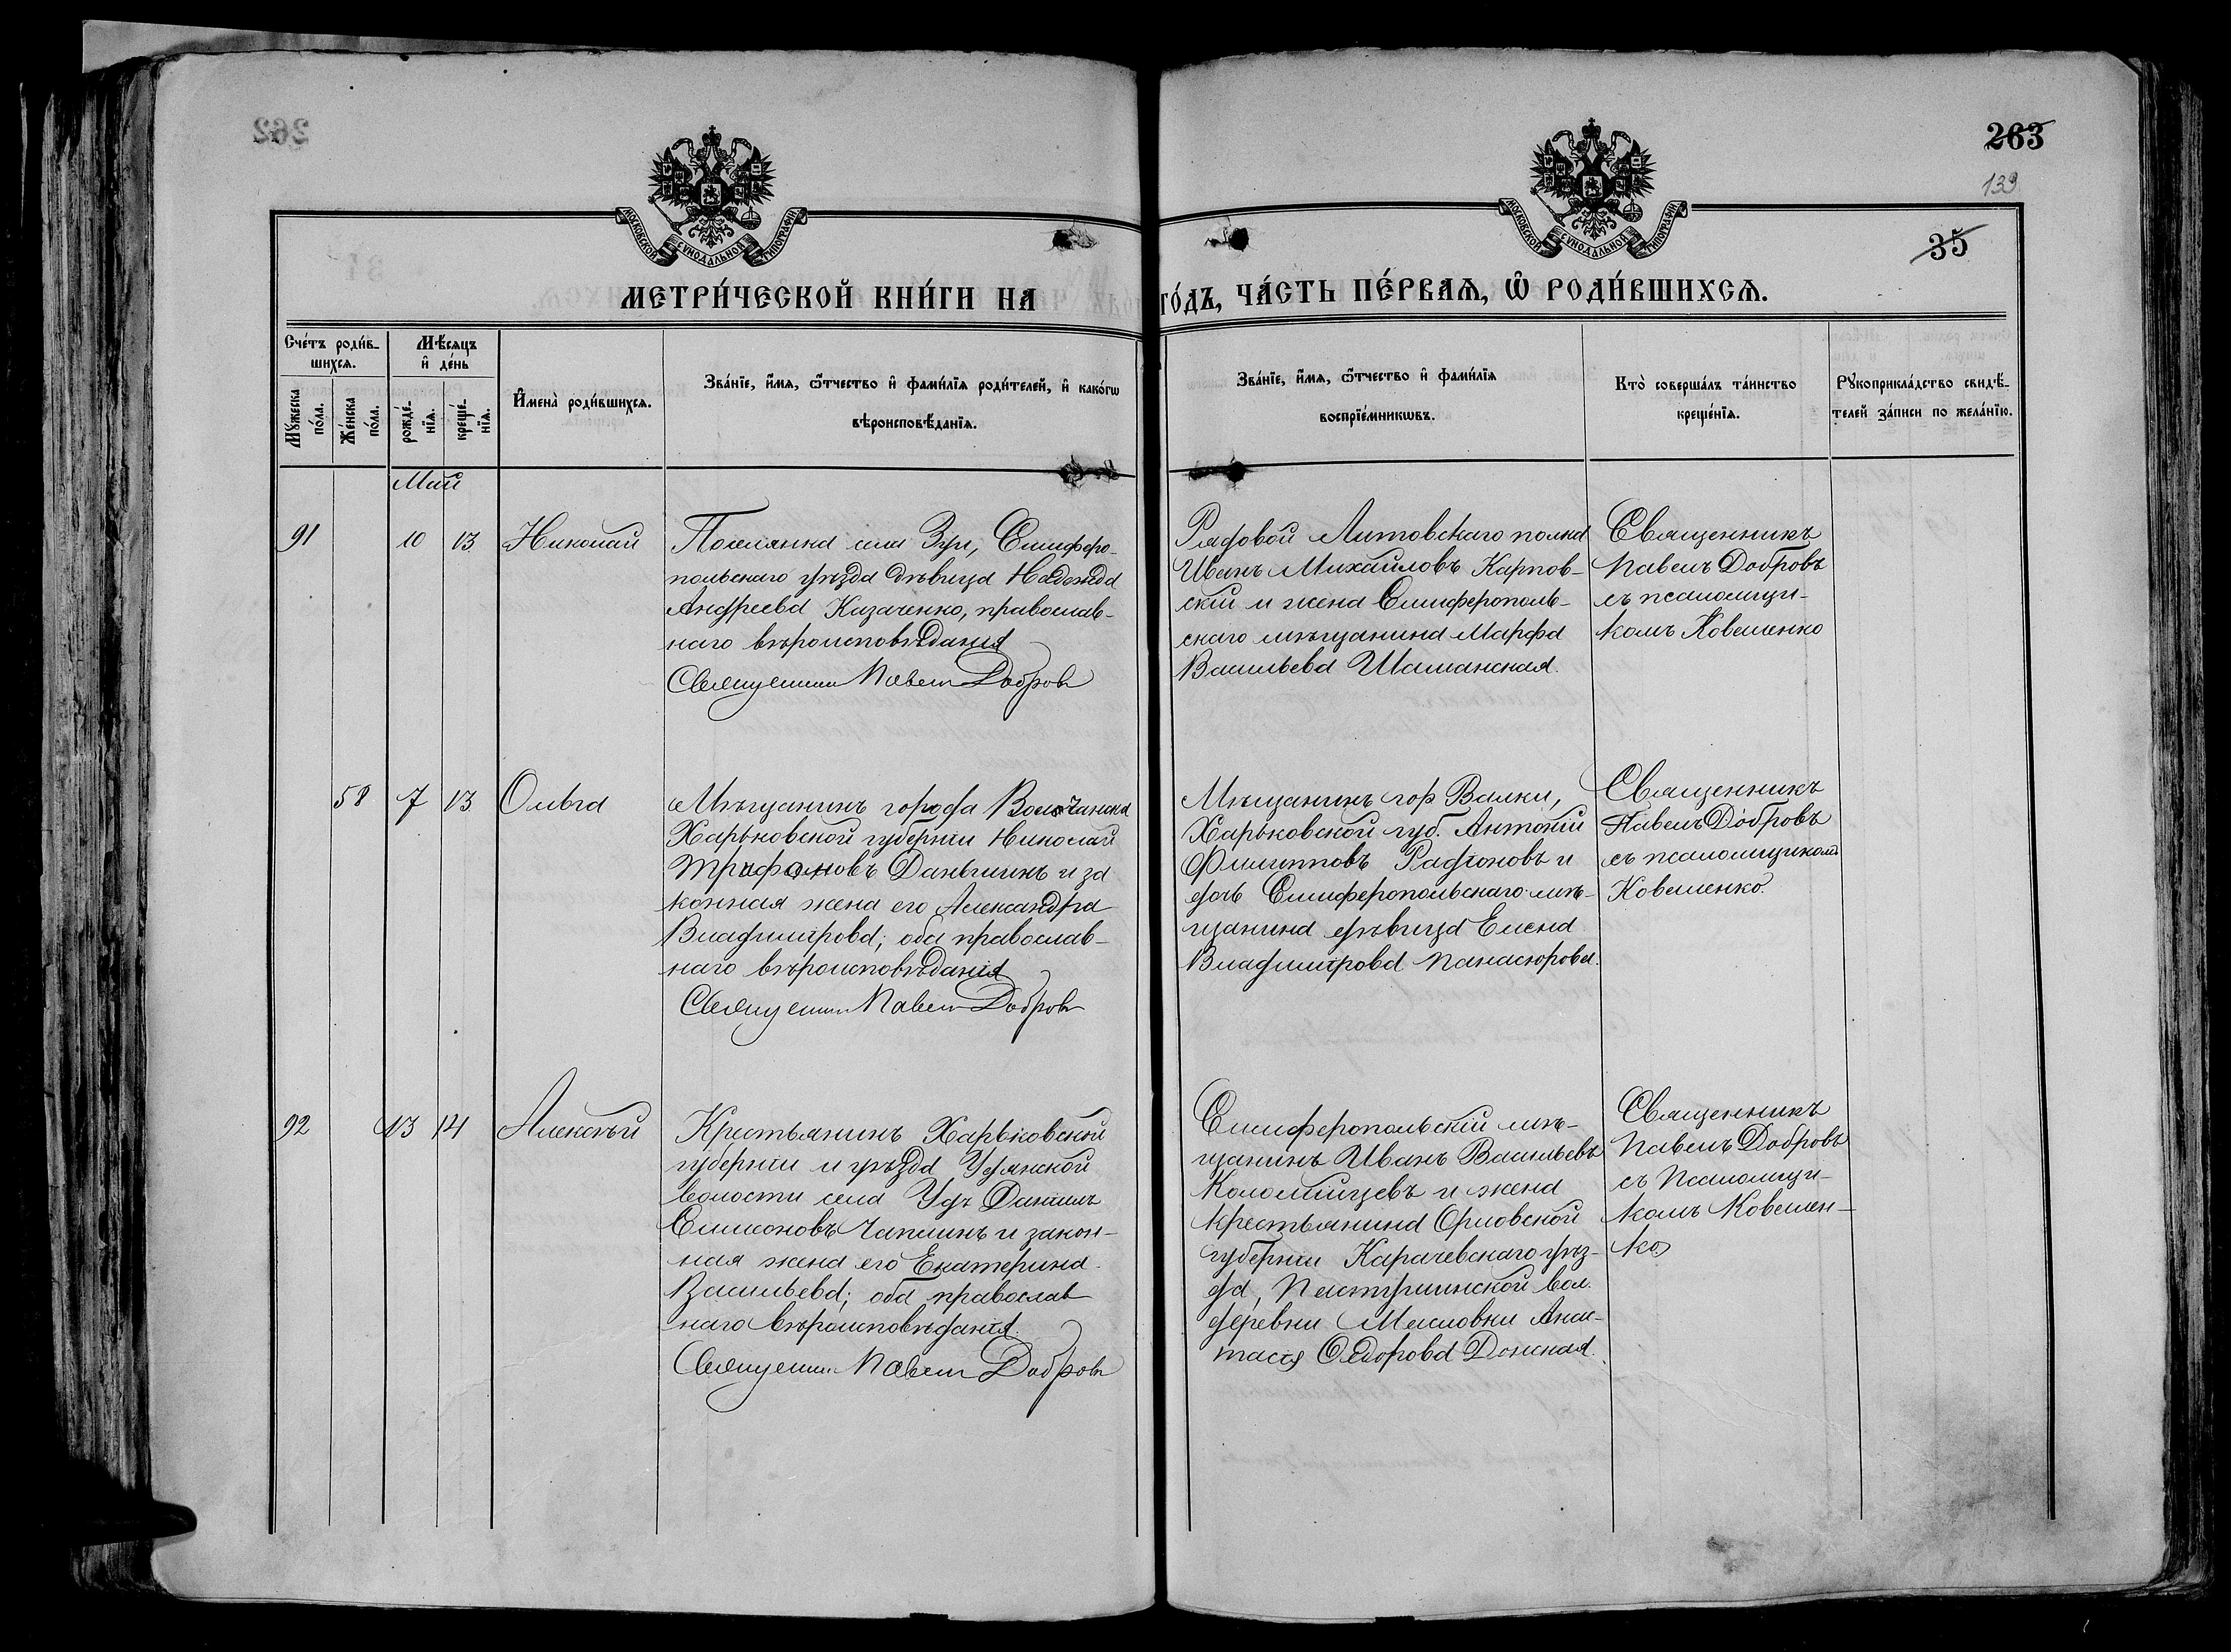 262
263
139
35
МОСКОВСКОЙ СѴНОДАЛЬНОЙ ТИПОГРАФІИ
МОСКОВСКОЙ СѴНОДАЛЬНОЙ ТИПОГРАФІИ
МЕТРИ́ЧЕСКОЙ КНИ́ГИ НА
ГО́ДЪ, ЧА́СТЬ ПЕ́РВАѦ, Ѡ҆ РОДИ́ВШИХСѦ.
Сче́тъ роди́в-
шихсѧ.
Мѣ́сѧцъ
и҆ де́нь
Мꙋ́жеска
по́ла.
Же́нска
по́ла.
рожде́-
нїѧ.
креще́-
нїѧ.
И҆мена̀ роди́вшихсѧ.
Зва́нїе, и҆́мѧ, ѻ҆́тчество и҆ фами́лїѧ роди́телей, и҆ како́гѡ
вѣроисповѣ́данїѧ.
Зва́нїе, и҆́мѧ, ѻ҆́тчество и҆ фами́лїѧ
воспрїе́мникѡвъ.
Кто̀ соверша́лъ та́инство
креще́нїѧ.
Рꙋкоприкла́дство свидѣ́-
телей за́писи по жела́нїю.
Май
91
10
13
Николай
Поселянка села Зуи, Симферо-
польскаго уѣзда дѣвица Надежда
Андреева Казаченко, православ-
наго вѣроисповѣданія
Священник Павел Добров
Рядовой Литовскаго полка
Иванъ Михайловъ Карпов-
скій и жена Симферополь-
скаго мѣщанина Марфа
Васильева Шиманская.
Священникъ
Павелъ Добровъ
съ псаломщи-
комъ Ковешенко
58
7
13
Ольга
Мѣщанинъ города Волчанска
Харьковской губерніи Николай
Трифоновъ Даньшинъ и за
конная жена его Александра
Владимірова; оба православ-
наго вѣроисповѣданія
Священник Павел Добров
Мѣщанинъ гор Валки,
Харьковской губ. Антоній
Филипповъ Радіоновъ и
дочь Симферопольскаго мѣ-
щанина дѣвица Елена
Владимірова Панасюрова.
Священникъ
Павелъ Добровъ
съ псаломщикомъ
Ковешенко
92
13
14
Алексѣй
Крестьянинъ Харьковской
губерніи и уѣзда Удянской
волости села Удъ Даніилъ
Симеоновъ Чаплинъ и закон-
ная жена его Екатерина
Васильева; оба православ
наго вѣроисповѣданія.
Священник Павел Добров
Симферопольскій мѣ-
щанинъ Иванъ Васильевъ
Коломійцевъ и жена
крестьянина Орловской
губерніи Карачевскаго уѣз-
да, вол.
деревни Масловки Анас-
тасія Ѳедорова Донская.
Священникъ
Павелъ Добровъ
съ Псаломщи-
комъ Ковешен-
ко